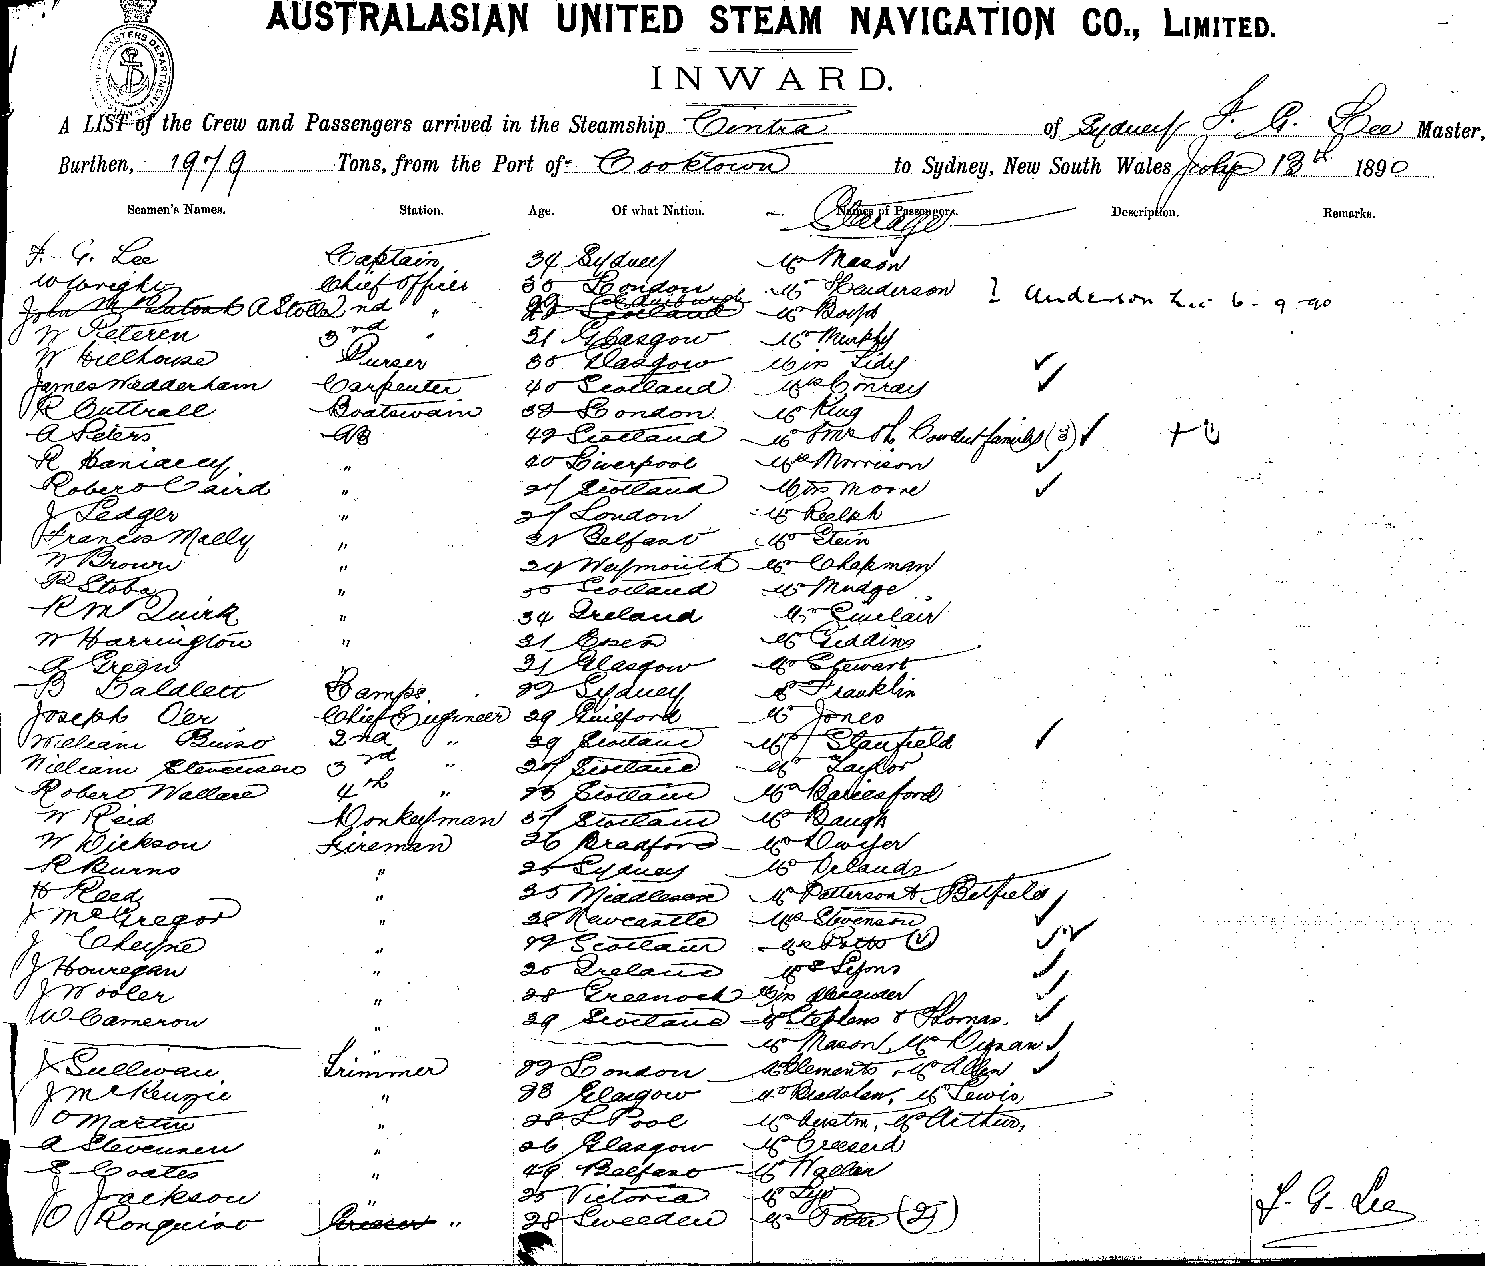 AUSTRALASIAN UNITED STEAM NAVIGATION CO., LIMITED.
INWARD.
A LIST of the Crew and Passengers arrived in the Steamship Cintra of Sydney F. G. Lee Master,
Burthen, 1979 Tons, from the Port of Cooktown to Sydney, New South Wales July 13th 1890
Seamen's Names. Station. Age. Of what Nation. Names of Passengers. Description. Remarks.
Steerage
F. G. Lee Captain 34 Sydney Mr Mason
W Wright Chief Officer 30 London Mr Henderson ? Anderson 6-9-90
John A Stolla 2nd " Mr
W Peteren 3rd " 31 Glasgow Mr Murphy
W Hillhouse Purser 30 Glasgow Miss Tidy
James Wedderham Carpenter 40 Scotland Mrs Conray
R Cuttrall Boatswain 38 London Mr King
A Peters AB 42 Scotland Mr family (3)
R " 40 Liverpool Mrs Morrison
Robert Caird " 27 Scotland Miss Moore
J Ledger " 27 London Mr Ralph
Francis Mally " 31 Belfast Mr Stein
W Brown " 24 Weymouth Mr Chapman
R Stoba " Scotland Mr Mudge
R M Quirk " 34 Ireland Mr Sinclair
W Harrington " 21 Essex Mr Giddins
A Green 21 Glasgow Mr Stewart
B Lamps 22 Sydney Mr Franklin
Joseph Oer Chief Engineer 29 Guilford Mr Jones
William 2nd " 29 Scotland Mr Stanfield
William Stevenson 3rd " 27 Scotland Mr Taylor
Robert Wallace 4th " 23 Scotland Mr
W Reid Donkeyman 37 Scotland Mr Baugh
W Dickson Fireman 26 Bradford Mr Dwyer
R Burns " 25 Sydney Mr
H Reed " 25 Mr Patterson & Betfield
J McGregor " 28 Newcastle Mrs Stevenson
J Cheyne " 22 Scotland Mrs Potts
J Houregan " 20 Ireland Mrs Lyons
J Wooler " 28 Greenock Miss Alexander
W Cameron " 29 Scotland Mr Stephens & Thomas.
" Mr Mason, Mr
J Sullivan Trimmer 22 London Clements, Mr Allen
J McKenzie " 23 Glasgow Mr Bradshaw, Mr Lewis,
O Martin " 28 L Pool Mr Austin, Mr Arthur,
A Stevensen " 26 Glasgow Mr
E Coates " 49 Belfast Mr Waller
J Jackson " 25 Victoria Mr
O Ronquist " 28 Sweeden Mr
F. G. Lee